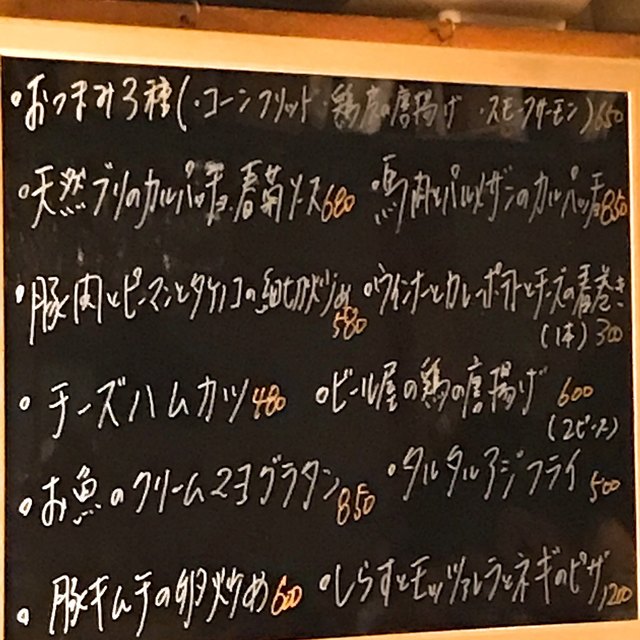 ・おつまみ3種(・コーンフリット・鶏皮の唐揚げ ・スモークサーモン)650
・天然ブリのカルパッチョ 春菊ソース680 ・馬肉とパルメザンのカルパッチョ850
・豚肉とピーマンとタケノコの細切り炒め580 ・ウインナーとカレーポテトとチーズの春巻き(1本)300
・チーズハムカツ480 ・ビール屋の鶏の唐揚げ 600(2ピース)
・お魚のクリームマヨグラタン850 ・タルタルアジフライ500
・豚キムチの卵炒め600 ・しらすとモッツァレラとネギのピザ1200